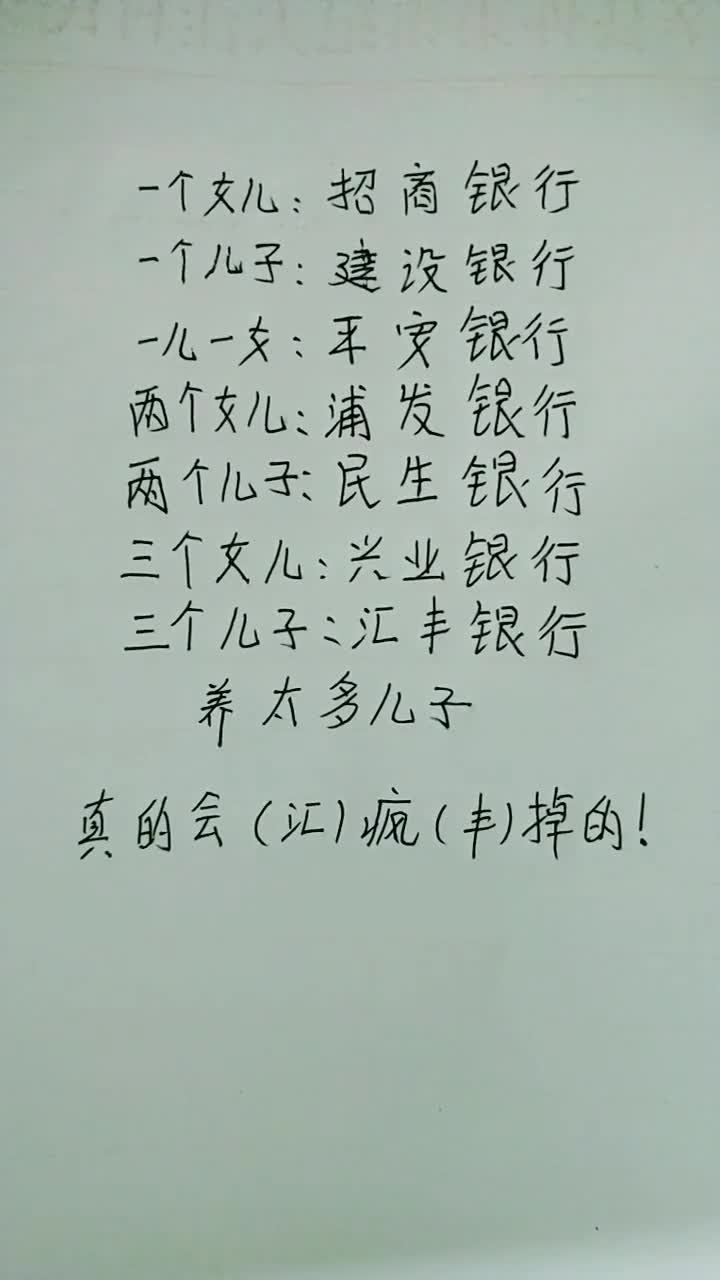 一个女儿：招商银行
一个儿子：建设银行
一儿一女：平安银行
两个女儿：浦发银行
两个儿子：民生银行
三个女儿：兴业银行
三个儿子：汇丰银行
养太多儿子
真的会（汇）疯（丰）掉的！